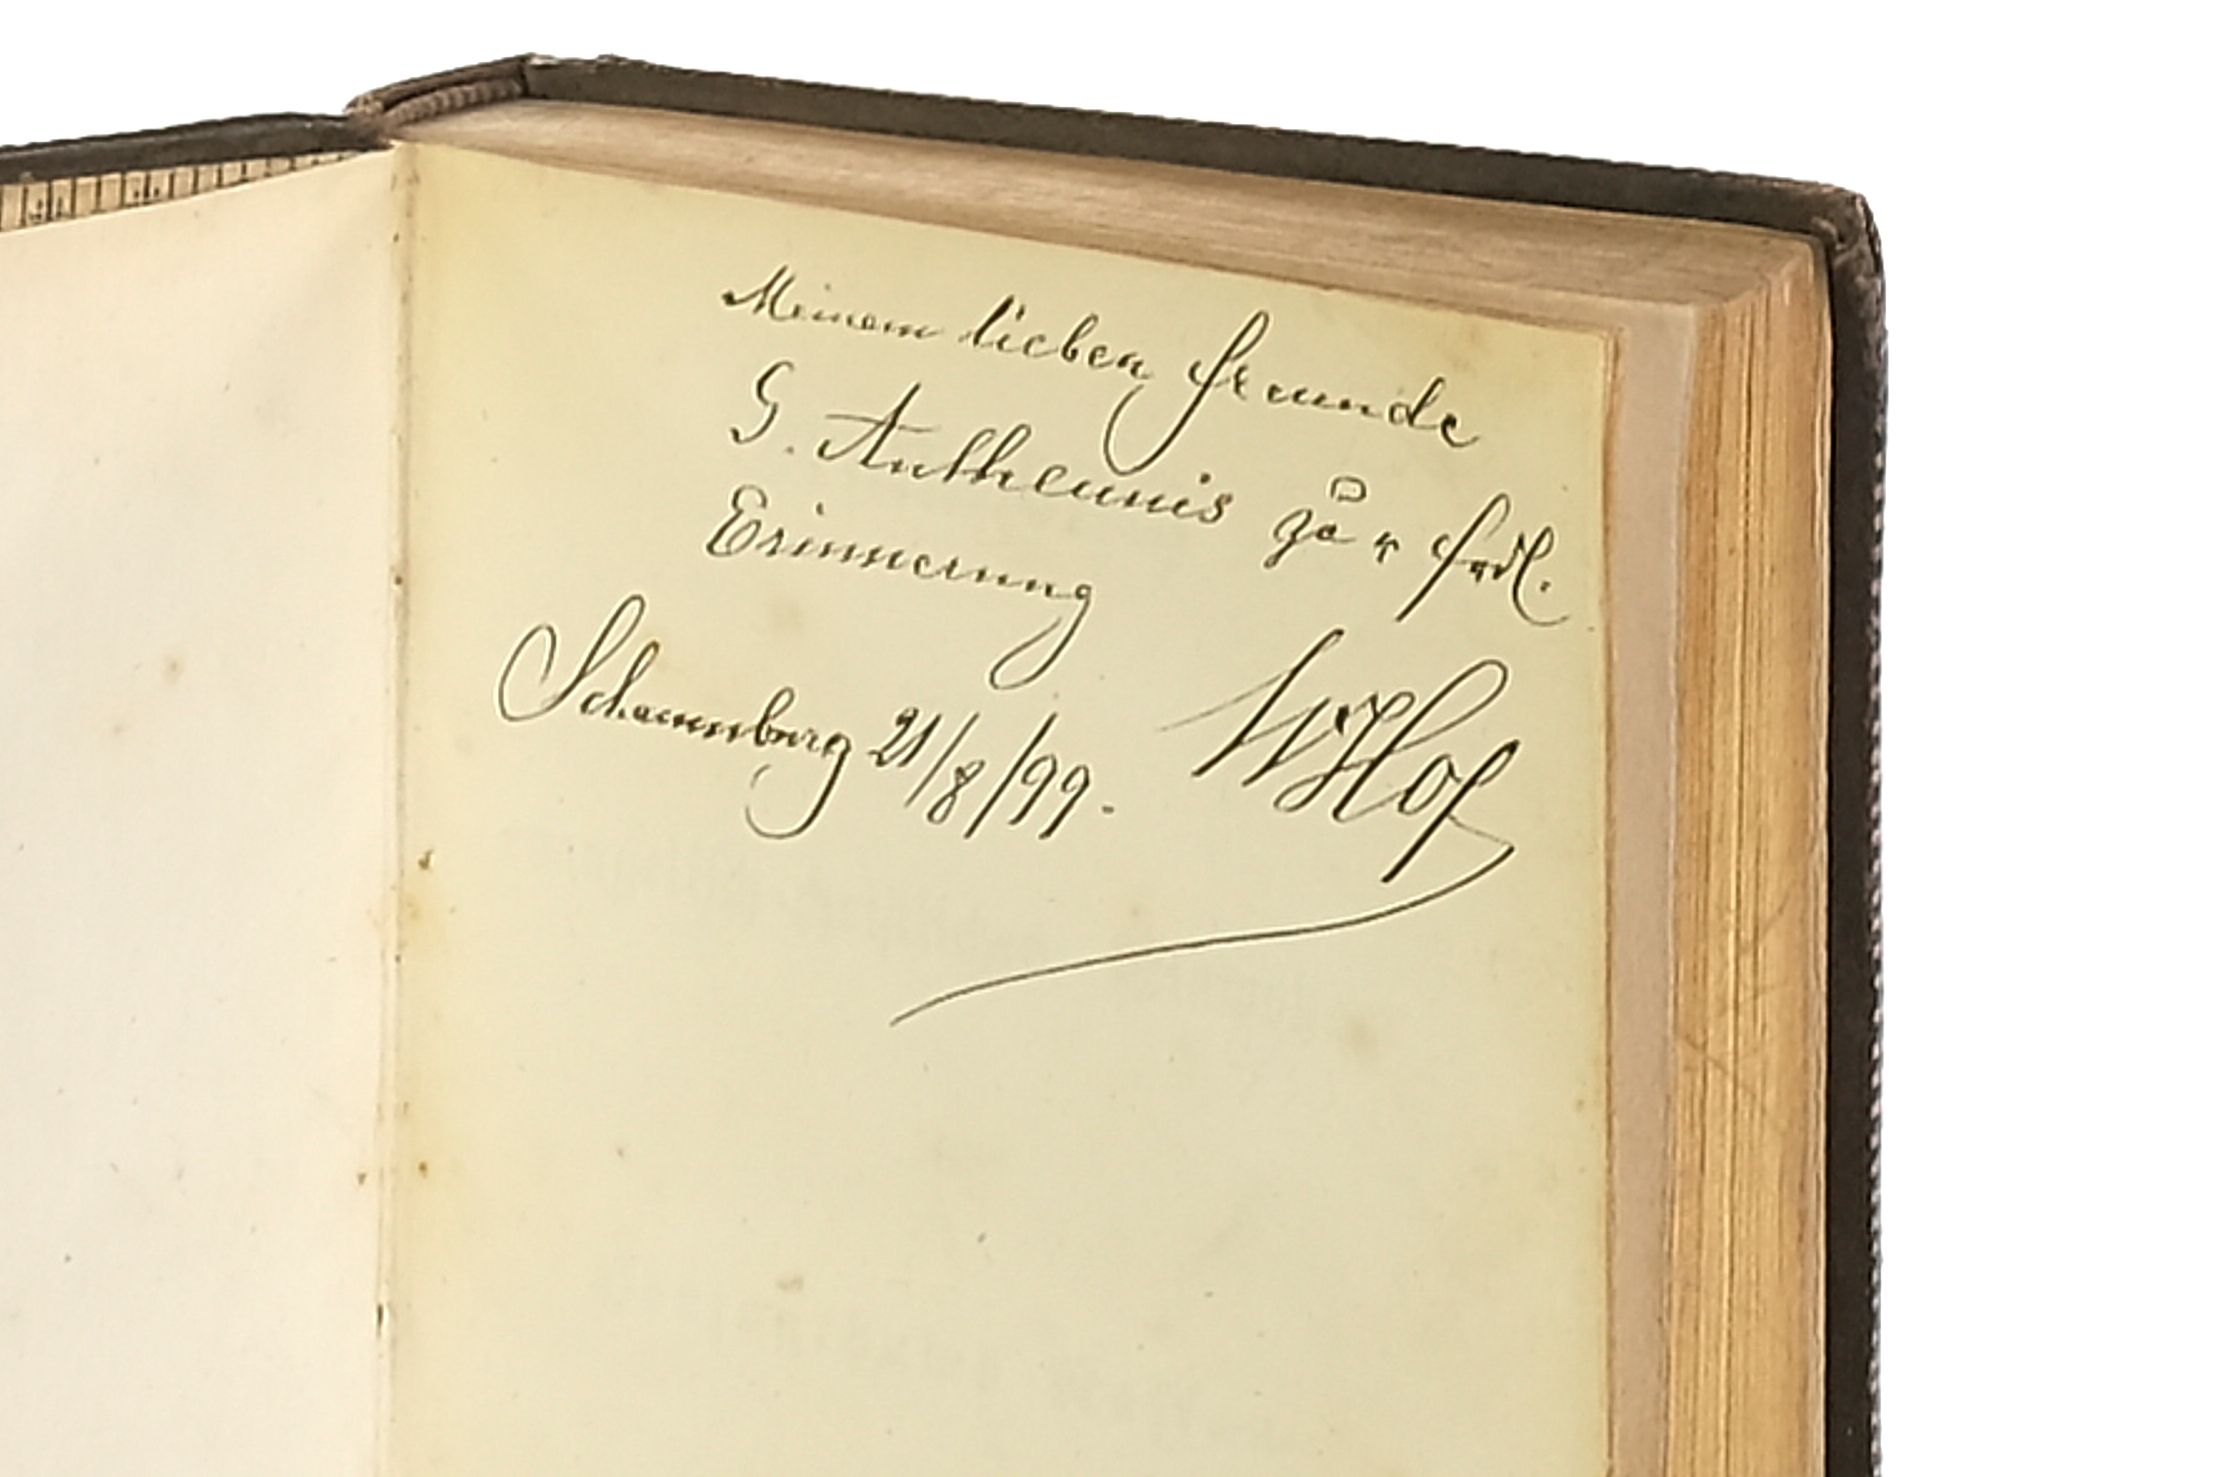 Meinem lieben Freunde
G. Antheunis zur frdl.
Erinnerung
Schaumburg 21/8/99.
WHof